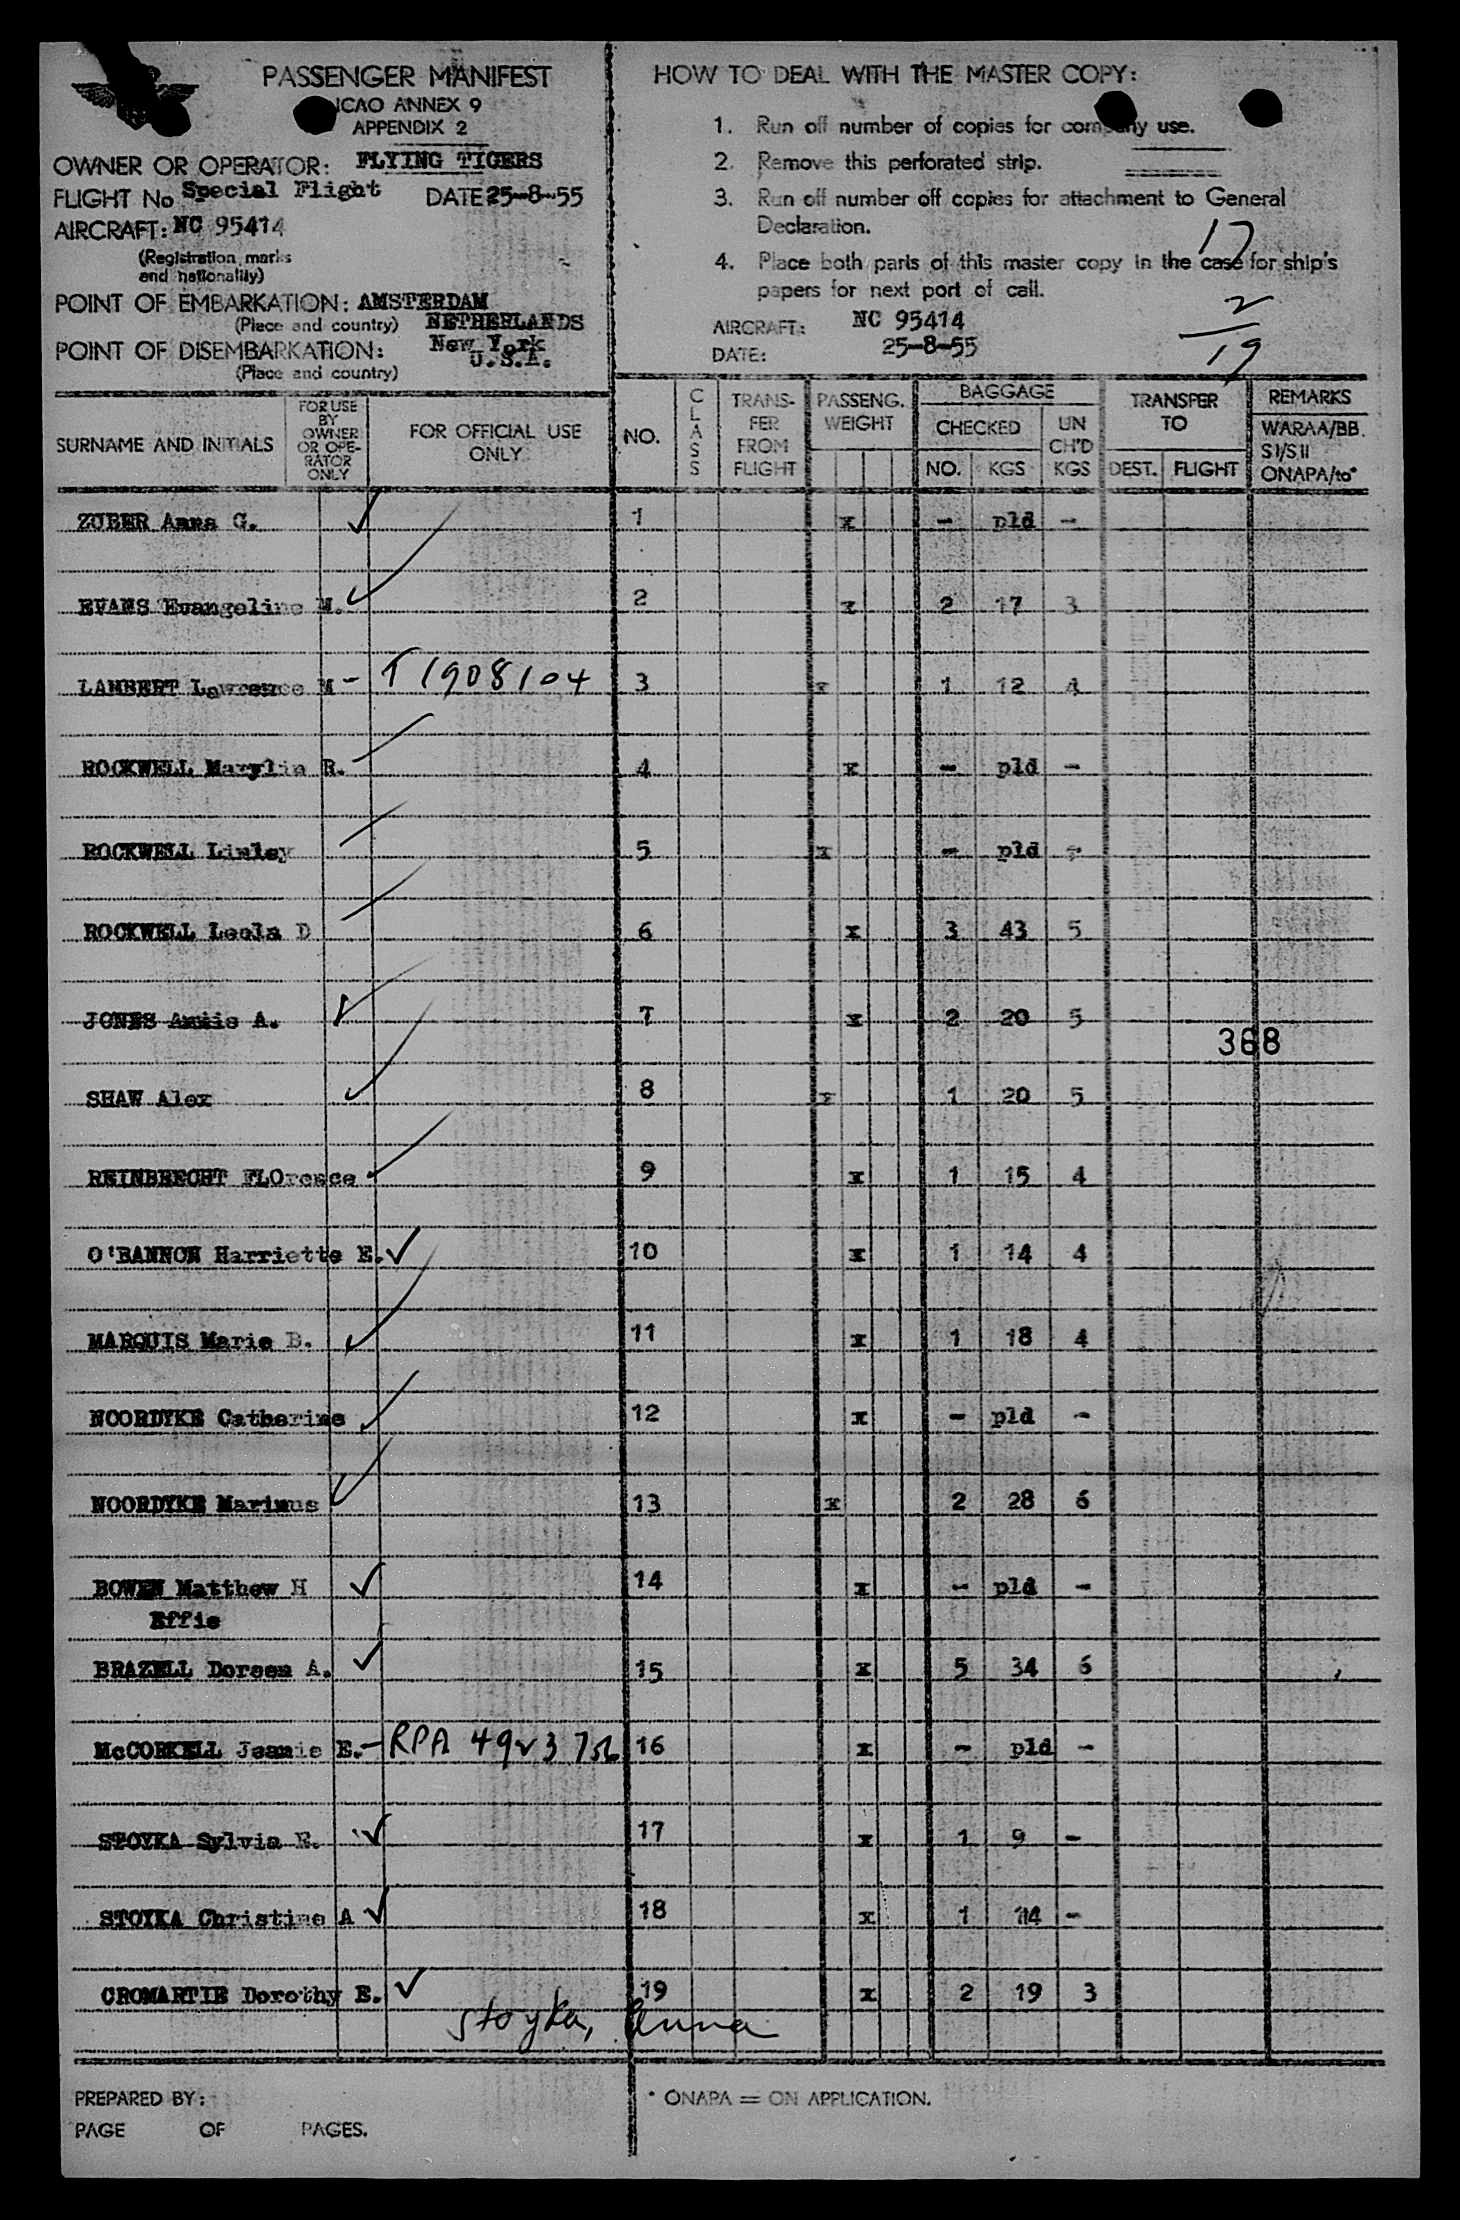 PASSENGER MANIFEST
ICAO ANNEX 9
APPENDIX 2
OWNER OR OPERATOR: FLYING TIGERS
FLIGHT No Special Flight DATE 25-8-55
AIRCRAFT: NC 95414
(Registration marks
and nationality)
POINT OF EMBARKATION: AMSTERDAM
(Place and country) NETHERLANDS
POINT OF DISEMBARKATION: New York
(Place and country) U.S.A.
HOW TO DEAL WITH THE MASTER COPY:
1. Run off number of copies for company use.
2. Remove this perforated strip.
3. Run off number off copies for attachment to General
Declaration.
4. Place both parts of this master copy in the case for ship's
papers for next port of call.
17
2
19
AIRCRAFT: NC 95414
DATE: 25-8-55
SURNAME AND INITIALS
FOR USE BY OWNER OR OPE-RATOR ONLY
FOR OFFICIAL USE ONLY
NO.
CLASS
TRANS-FER FROM FLIGHT
PASSENG. WEIGHT
BAGGAGE
CHECKED
NO. KGS
UN CH'D KGS
TRANSFER TO
DEST. FLIGHT
REMARKS
WARAA/BB.
SI/SII
ONAPA/to*
ZUBER Anna G. 1 x - pld -
EVANS Evangeline M. 2 x 2 17 3
LAMBERT Lawrence M - T1908104 3 x 1 12 4
ROCKWELL Marylin R. 4 x - pld -
ROCKWELL Linley 5 x - pld -
ROCKWELL Leola D 6 x 3 43 5
JONES Annie A. 7 x 2 20 5
368
SHAW Alex 8 x 1 20 5
REINBRECHT FLOrence 9 x 1 15 4
O'BANNON Harriette E. 10 x 1 14 4
MARQUIS Marie B. 11 x 1 18 4
NOORDYKE Catherine 12 x - pld -
NOORDYKE Marinus 13 x 2 28 6
BOWEN Matthew H 14 x - pld -
Effie
BRAZELL Doreen A. 15 x 5 34 6
McCORKELL Jeanie E. - RPA 4923756 16 x - pld -
STOYKA Sylvia E. 17 x 1 9 -
STOYKA Christine A 18 x 1 14 -
CROMARTIE Dorothy E. 19 x 2 19 3
Stoyka, Anna
PREPARED BY:
PAGE OF PAGES.
* ONAPA = ON APPLICATION.